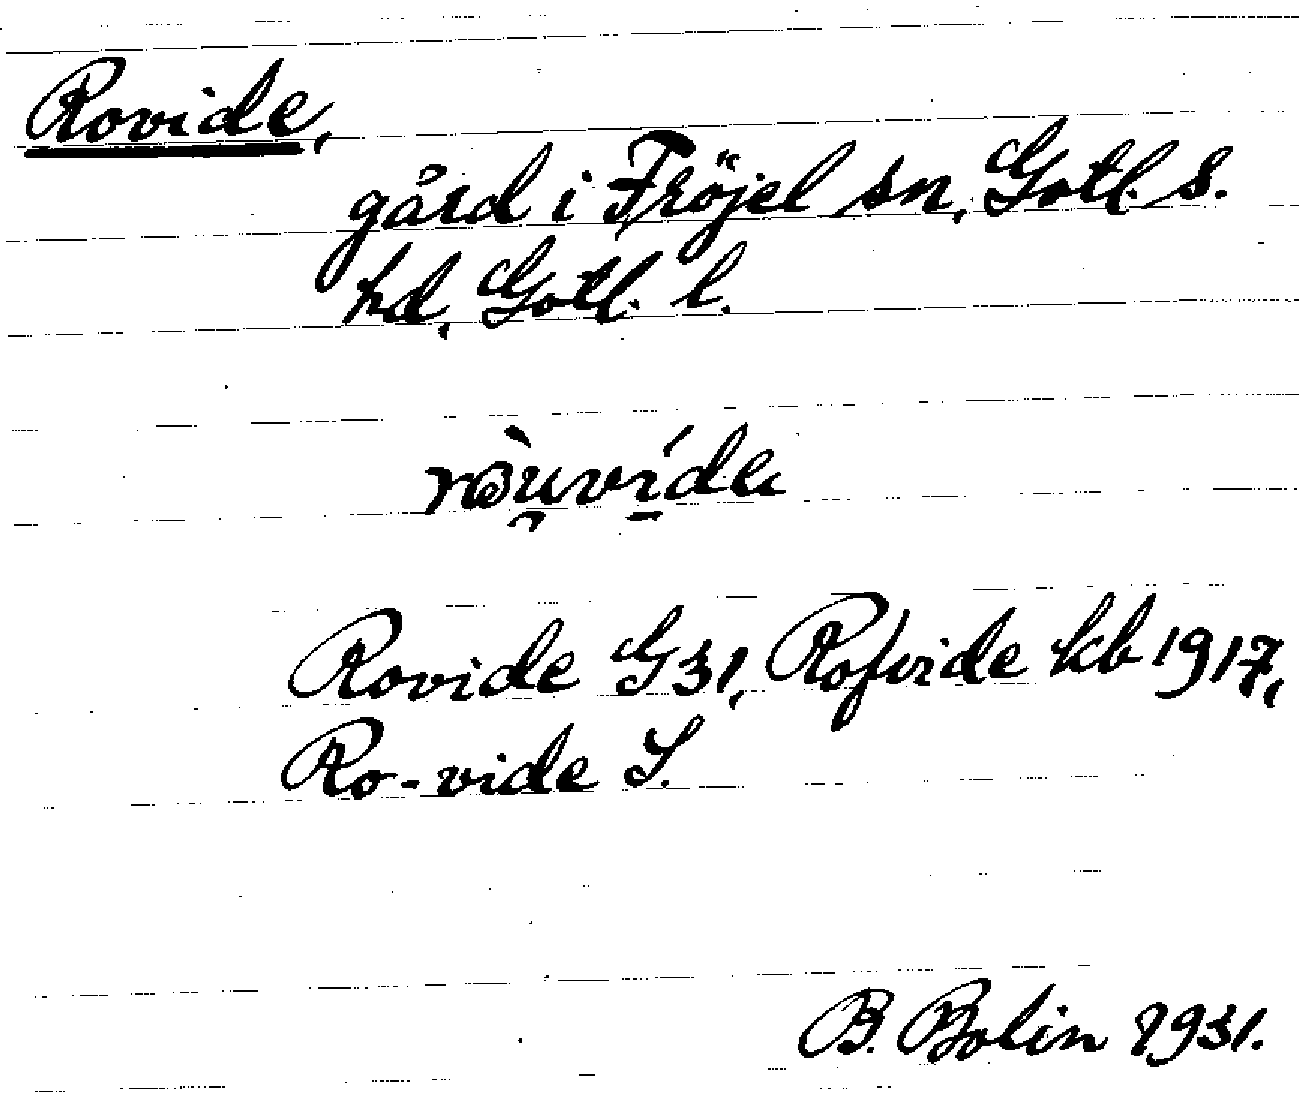 Rovide,
gård i Fröjel sn, Gotl. s.
hd, Gotl. l.
Rovide G 31, Rofvide kb 1917,
Ro-vide S.
B. Bolin 1931.